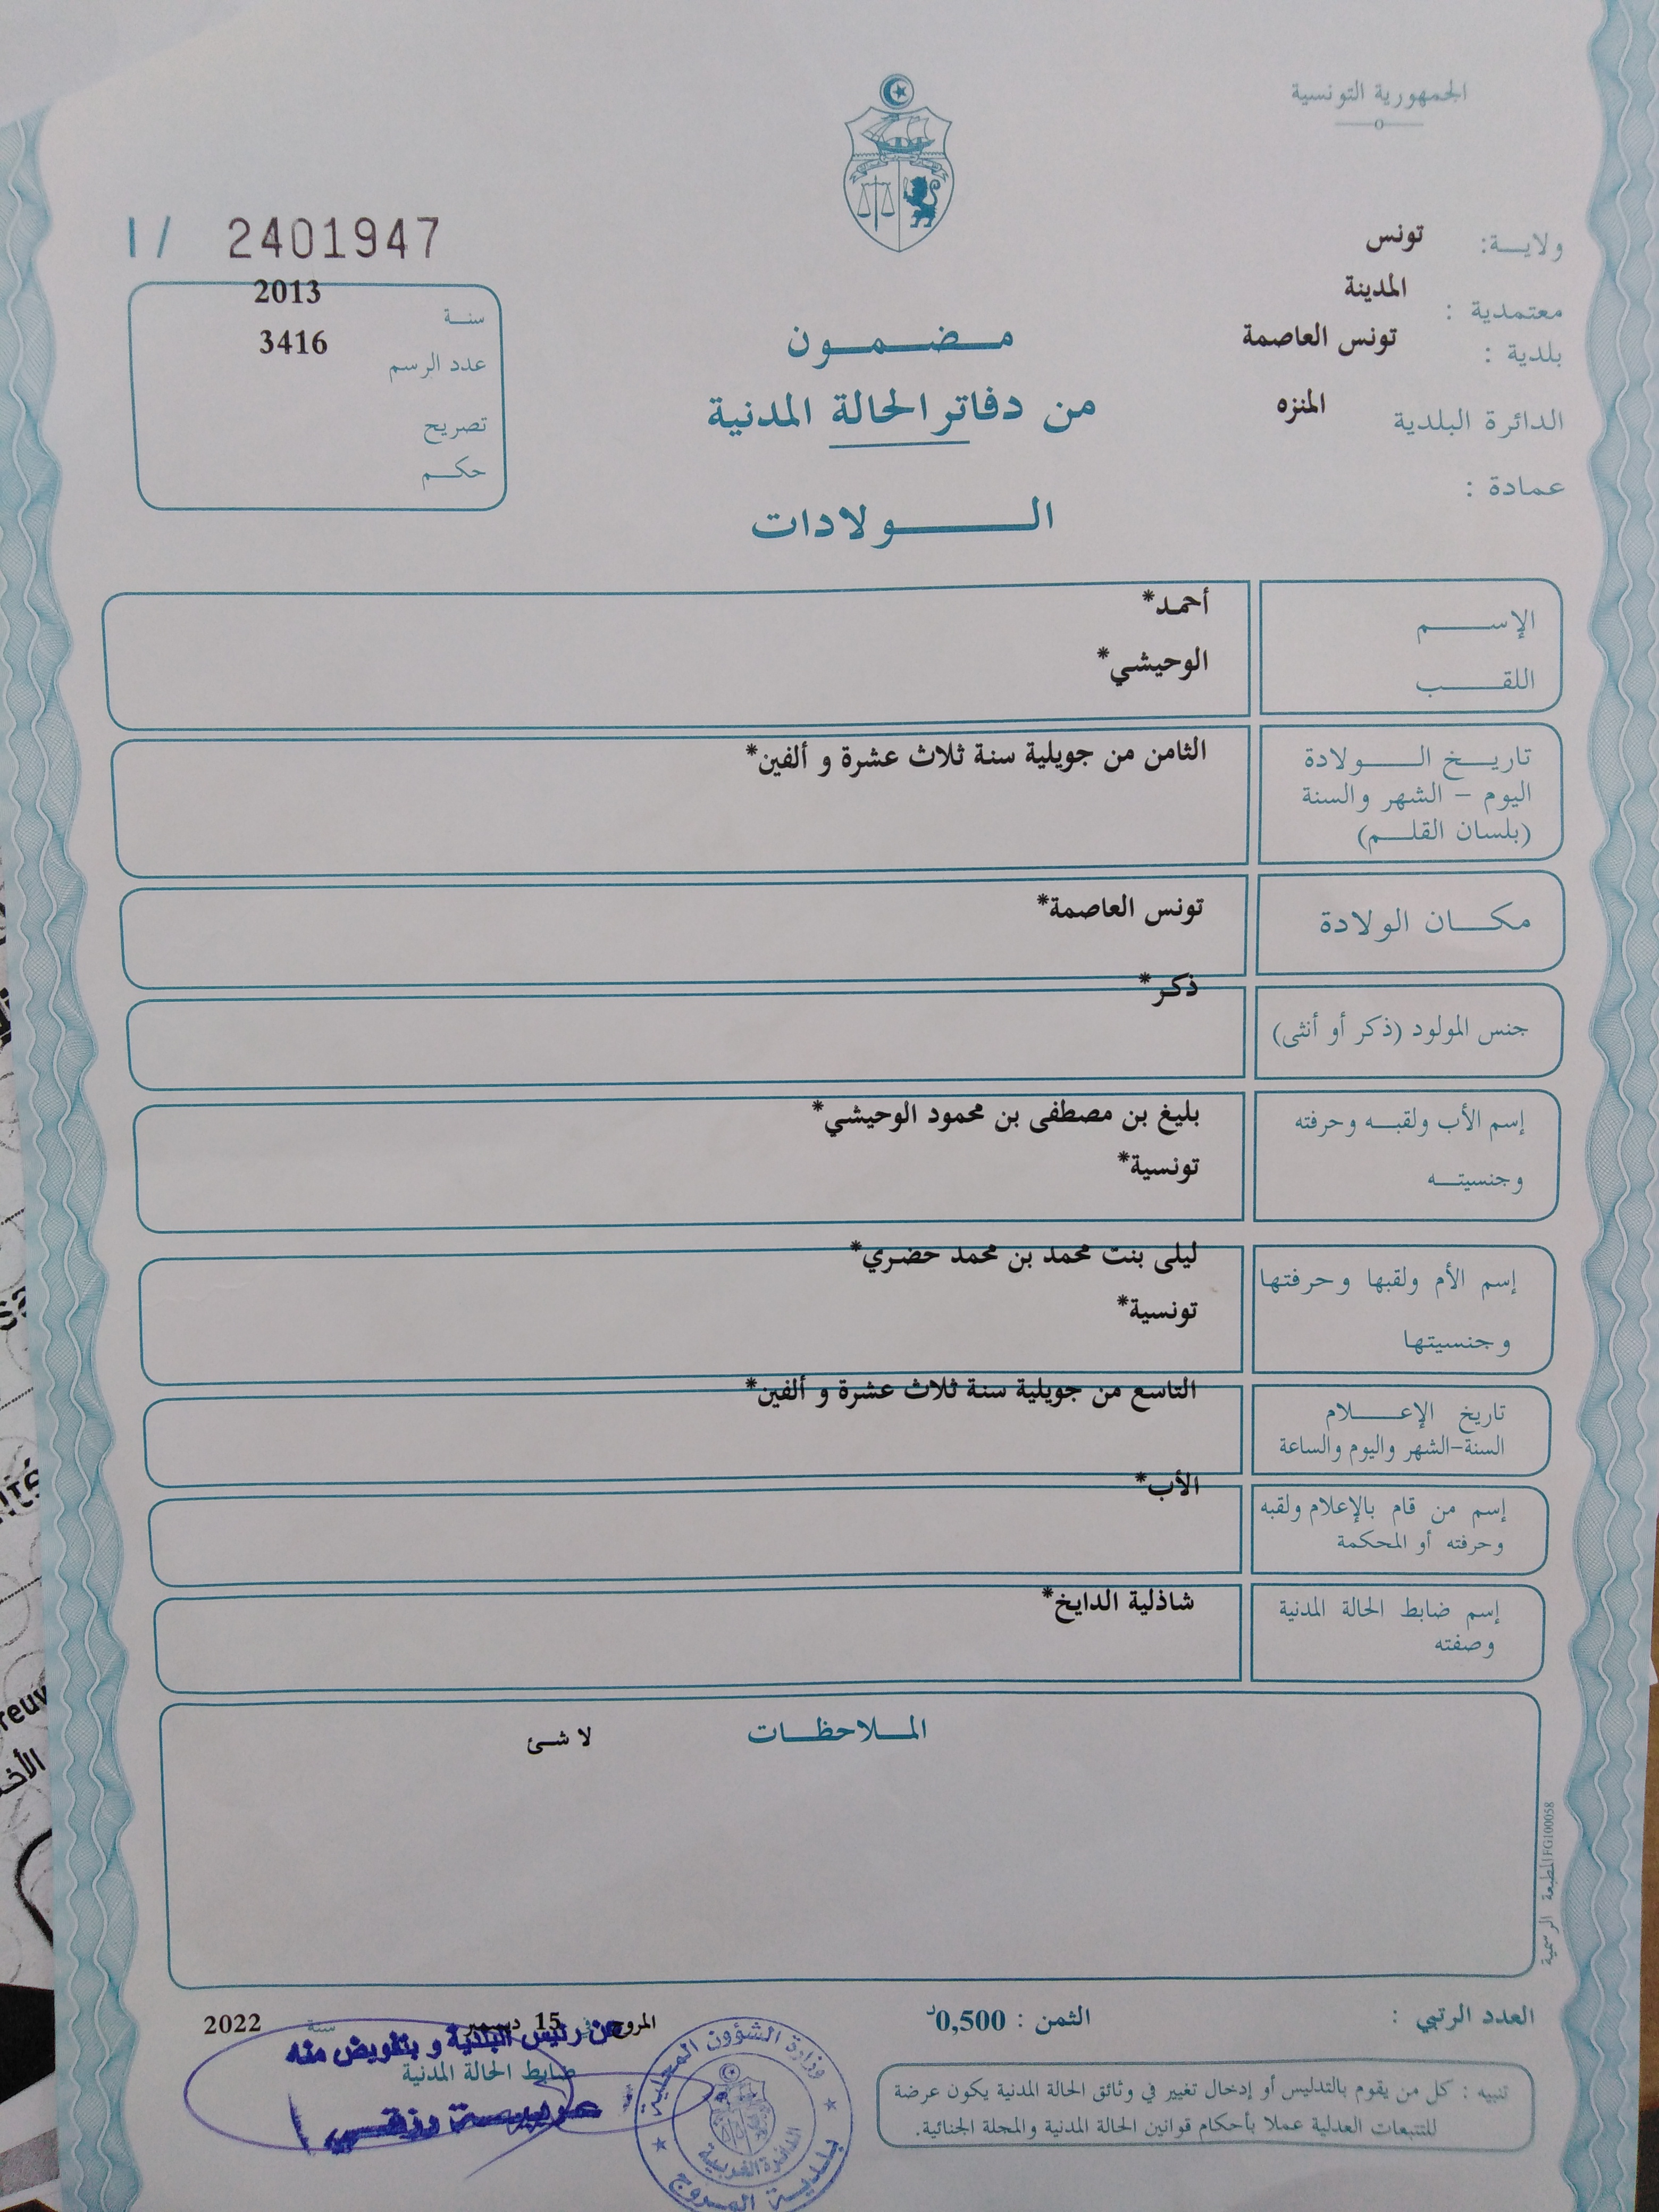 الجمهورية التونسية
ولاية: تونس
معتمدية : المدينة
بلدية : تونس العاصمة
الدائرة البلدية المنزه
عمادة :
مضمون
من دفاتر الحالة المدنية
الولادات
I/ 2401947
سنة 2013
عدد الرسم 3416
تصريح
حكم
الإسم أحمد*
اللقب الوحيشي*
تاريخ الولادة الثامن من جويلية سنة ثلاث عشرة و ألفين*
اليوم - الشهر والسنة
(بلسان القلم)
مكان الولادة تونس العاصمة*
جنس المولود (ذكر أو أنثى) ذكر*
إسم الأب ولقبه وحرفته بليغ بن مصطفى بن محمود الوحيشي*
وجنسيته تونسية*
إسم الأم ولقبها وحرفتها ليلى بنت محمد بن محمد حضري*
وجنسيتها تونسية*
تاريخ الإعلام التاسع من جويلية سنة ثلاث عشرة و ألفين*
السنة-الشهر واليوم والساعة
إسم من قام بالإعلام ولقبه الأب*
وحرفته أو المحكمة
إسم ضابط الحالة المدنية شاذلية الدايخ*
وصفته
الملاحظات لا شئ
المطبعة الرسمية FG100058
العدد الرتبي :
الثمن : 0,500د
المروج في 15 ديسمبر سنة 2022
عن رئيس البلدية و بتفويض منه
ضابط الحالة المدنية
وزارة الشؤون المحلية
بلدية المروج
تنبيه : كل من يقوم بالتدليس أو إدخال تغيير في وثائق الحالة المدنية يكون عرضة
للتتبعات العدلية عملا بأحكام قوانين الحالة المدنية والمجلة الجنائية.